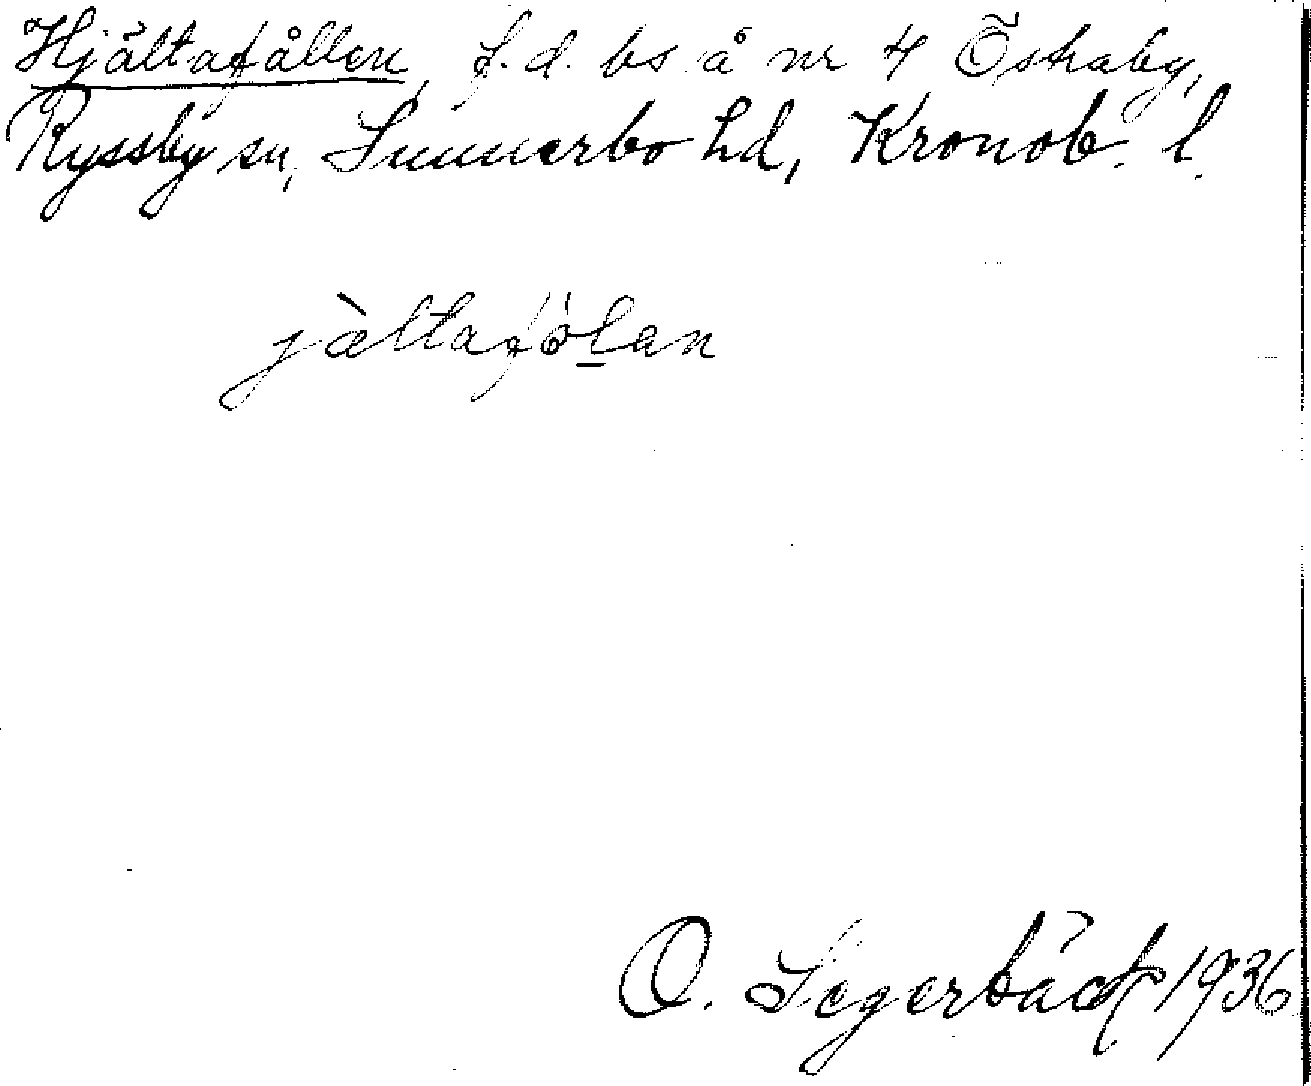 Hjältafållen, f.d. bs å nr 4 Östraby,
Ryssby sn, Sunnerbo hd, Kronob. l.
jàltafó̀lan
O. Segerbäck 1936